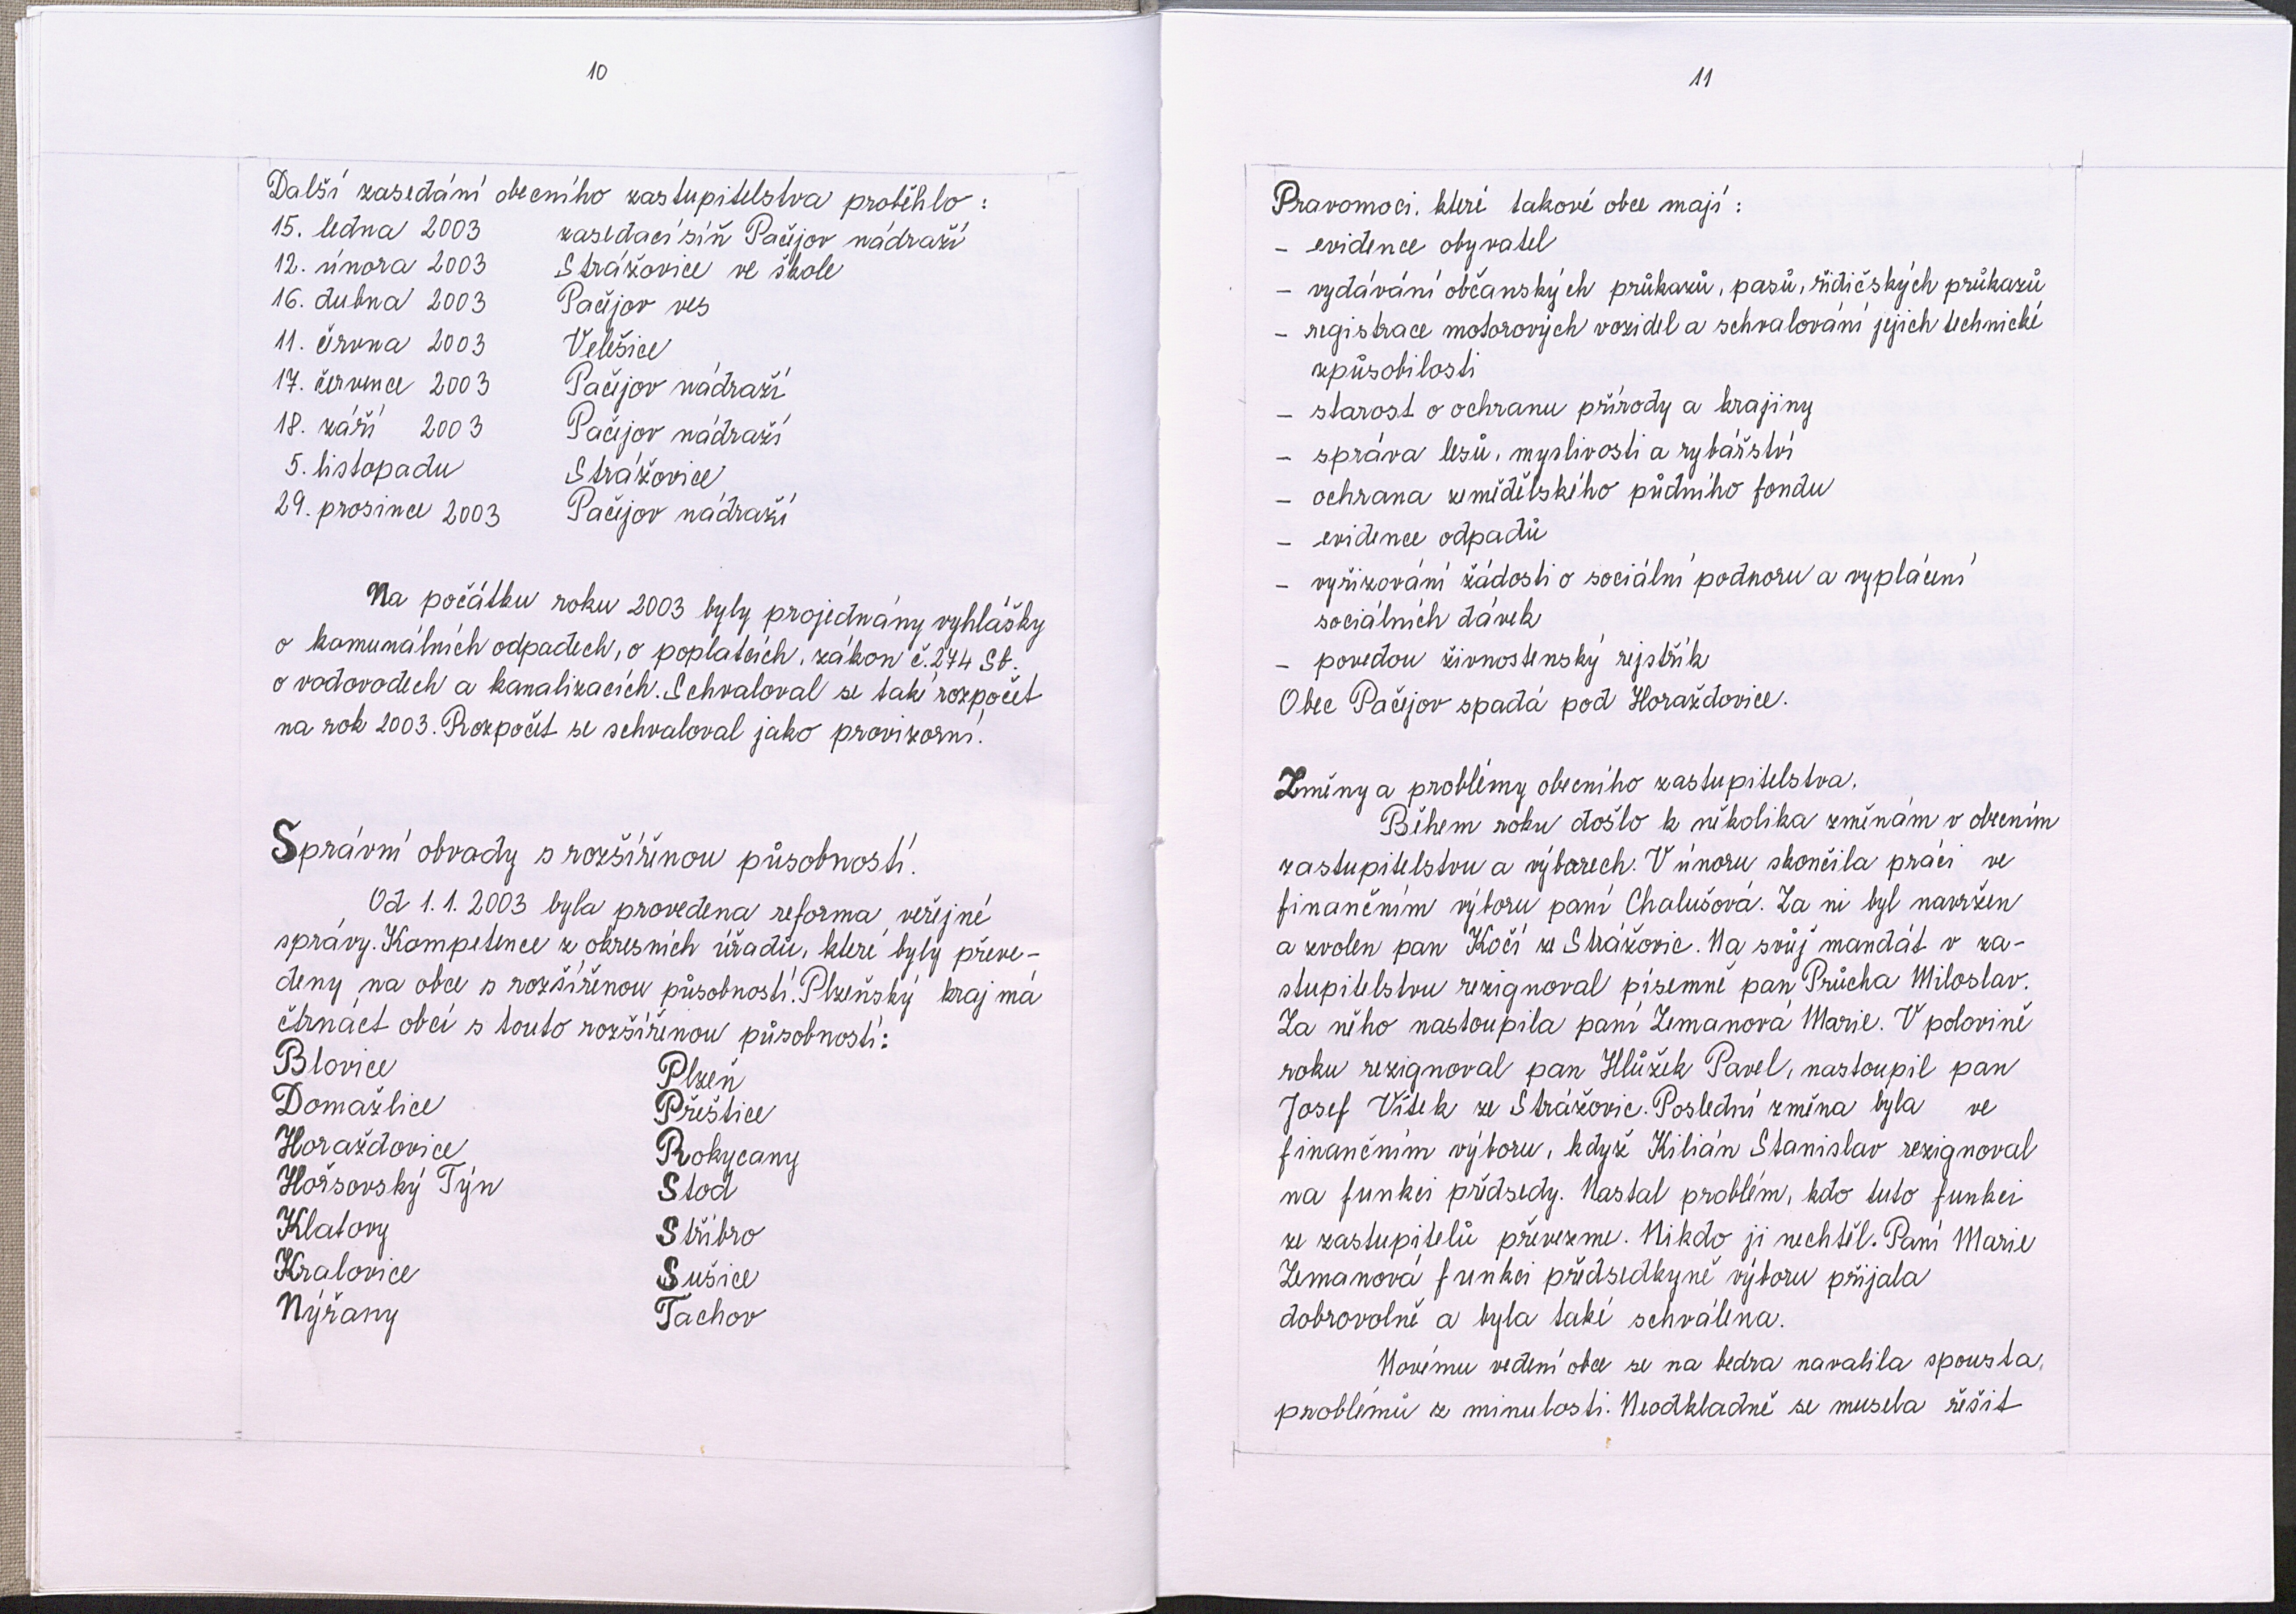 10
Další zasedání obecního zastupitelstva proběhlo :
15. ledna 2003 zasedací síň Pačejov nádraží
12. února 2003 Strážovice ve škole
16. dubna 2003 Pačejov ves
11. června 2003 Velešice
17. července 2003 Pačejov nádraží
18. září 2003 Pačejov nádraží
5. listopadu Strážovice
29. prosince 2003 Pačejov nádraží
Na počátku roku 2003 byly projednány vyhlášky
o komunálních odpadech, o poplatcích, zákon č. 274 Sb.
o vodovodech a kanalizacích. Schvaloval se také rozpočet
na rok 2003. Rozpočet se schvaloval jako provizorní.
Správní obvody s rozšířenou působností.
Od 1. 1. 2003 byla provedena reforma veřejné
správy. Kompetence z okresních úřadů, které byly převe-
deny na obce s rozšířenou působností. Plzeňský kraj má
čtrnáct obcí s touto rozšířenou působností:
Blovice Plzeň
Domažlice Přeštice
Horažďovice Rokycany
Horšovský Týn Stod
Klatovy Stříbro
Kralovice Sušice
Nýřany Tachov
11
Pravomoci, které takové obce mají :
- evidence obyvatel
- vydávání občanských průkazů, pasů, řidičských průkazů
- registrace motorových vozidel a schvalování jejich technické
způsobilosti
- starost o ochranu přírody a krajiny
- správa lesů, myslivosti a rybářství
- ochrana zemědělského půdního fondu
- evidence odpadů
- vyřizování žádosti o sociální podporu a vyplácení
sociálních dávek
- povedou živnostenský rejstřík
Obec Pačejov spadá pod Horažďovice.
Změny a problémy obecního zastupitelstva.
Během roku došlo k několika změnám v obecním
zastupitelstvu a výborech. V únoru skončila práci ve
finančním výboru paní Chalušová. Za ni byl navržen
a zvolen pan Kočí ze Strážovic. Na svůj mandát v za-
stupitelstvu rezignoval písemně pan Průcha Miloslav.
Za něho nastoupila paní Zemanová Marie. V polovině
roku rezignoval pan Hlůžek Pavel, nastoupil pan
Josef Vítek ze Strážovic. Poslední změna byla ve
finančním výboru, když Kilián Stanislav rezignoval
na funkci předsedy. Nastal problém, kdo tuto funkci
ze zastupitelů převezme. Nikdo ji nechtěl. Paní Marie
Zemanová funkci předsedkyně výboru přijala
dobrovolně a byla také schválena.
Novému vedení obce se na bedra navalila spousta
problémů z minulosti. Neodkladně se musela řešit